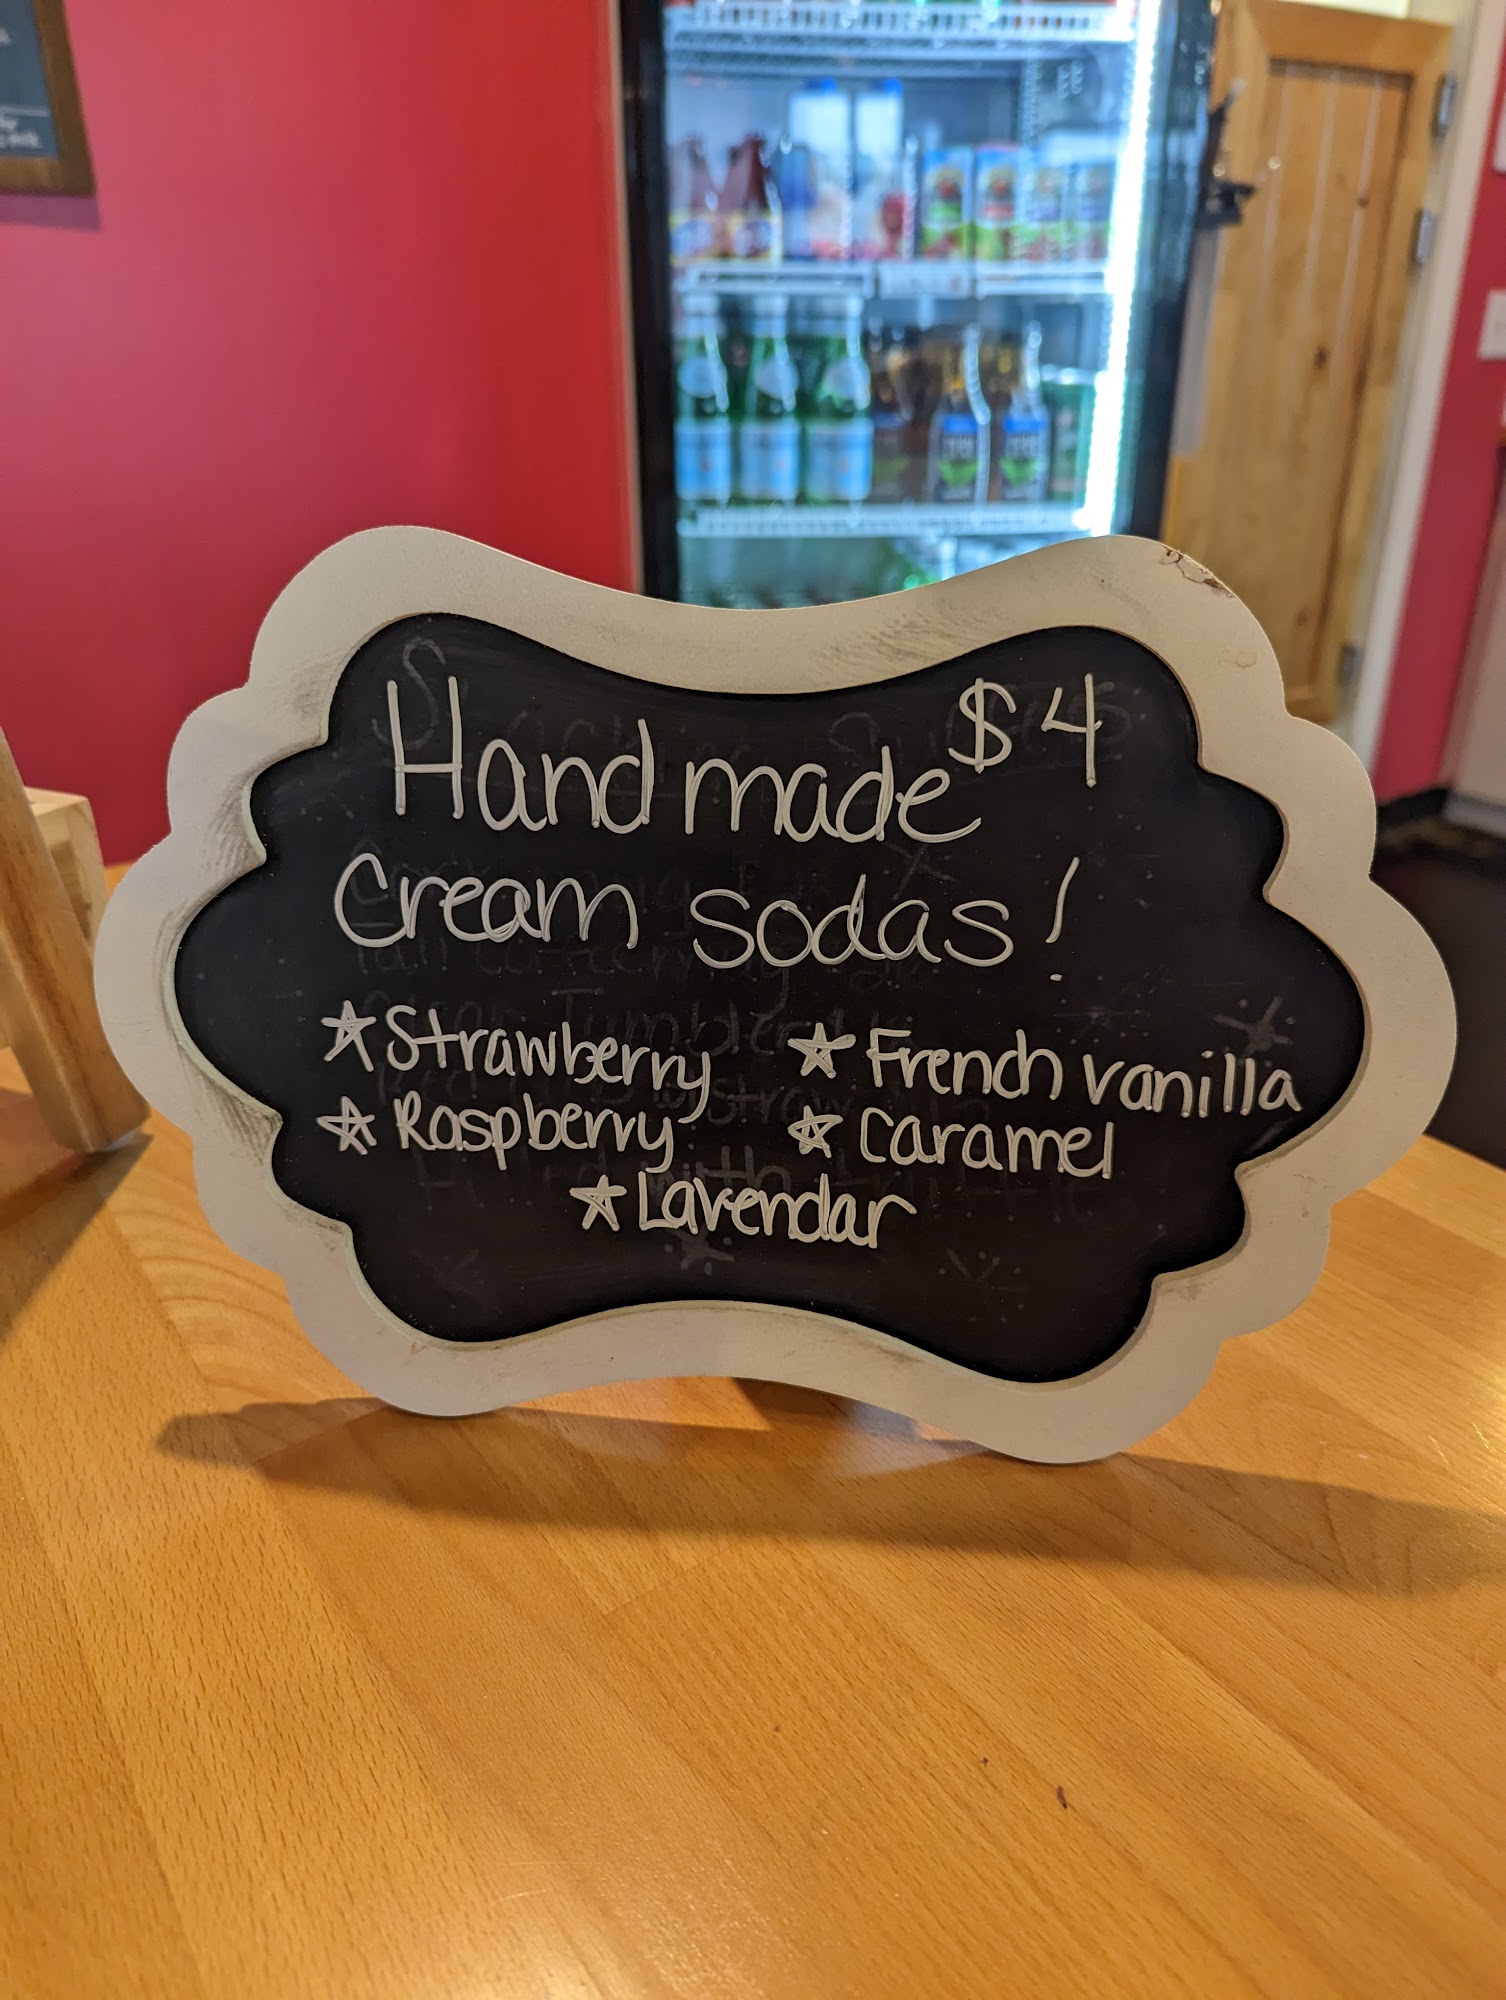 Handmade $4
Cream sodas!
Strawberry
French vanilla
Raspberry
Caramel
Lavendar